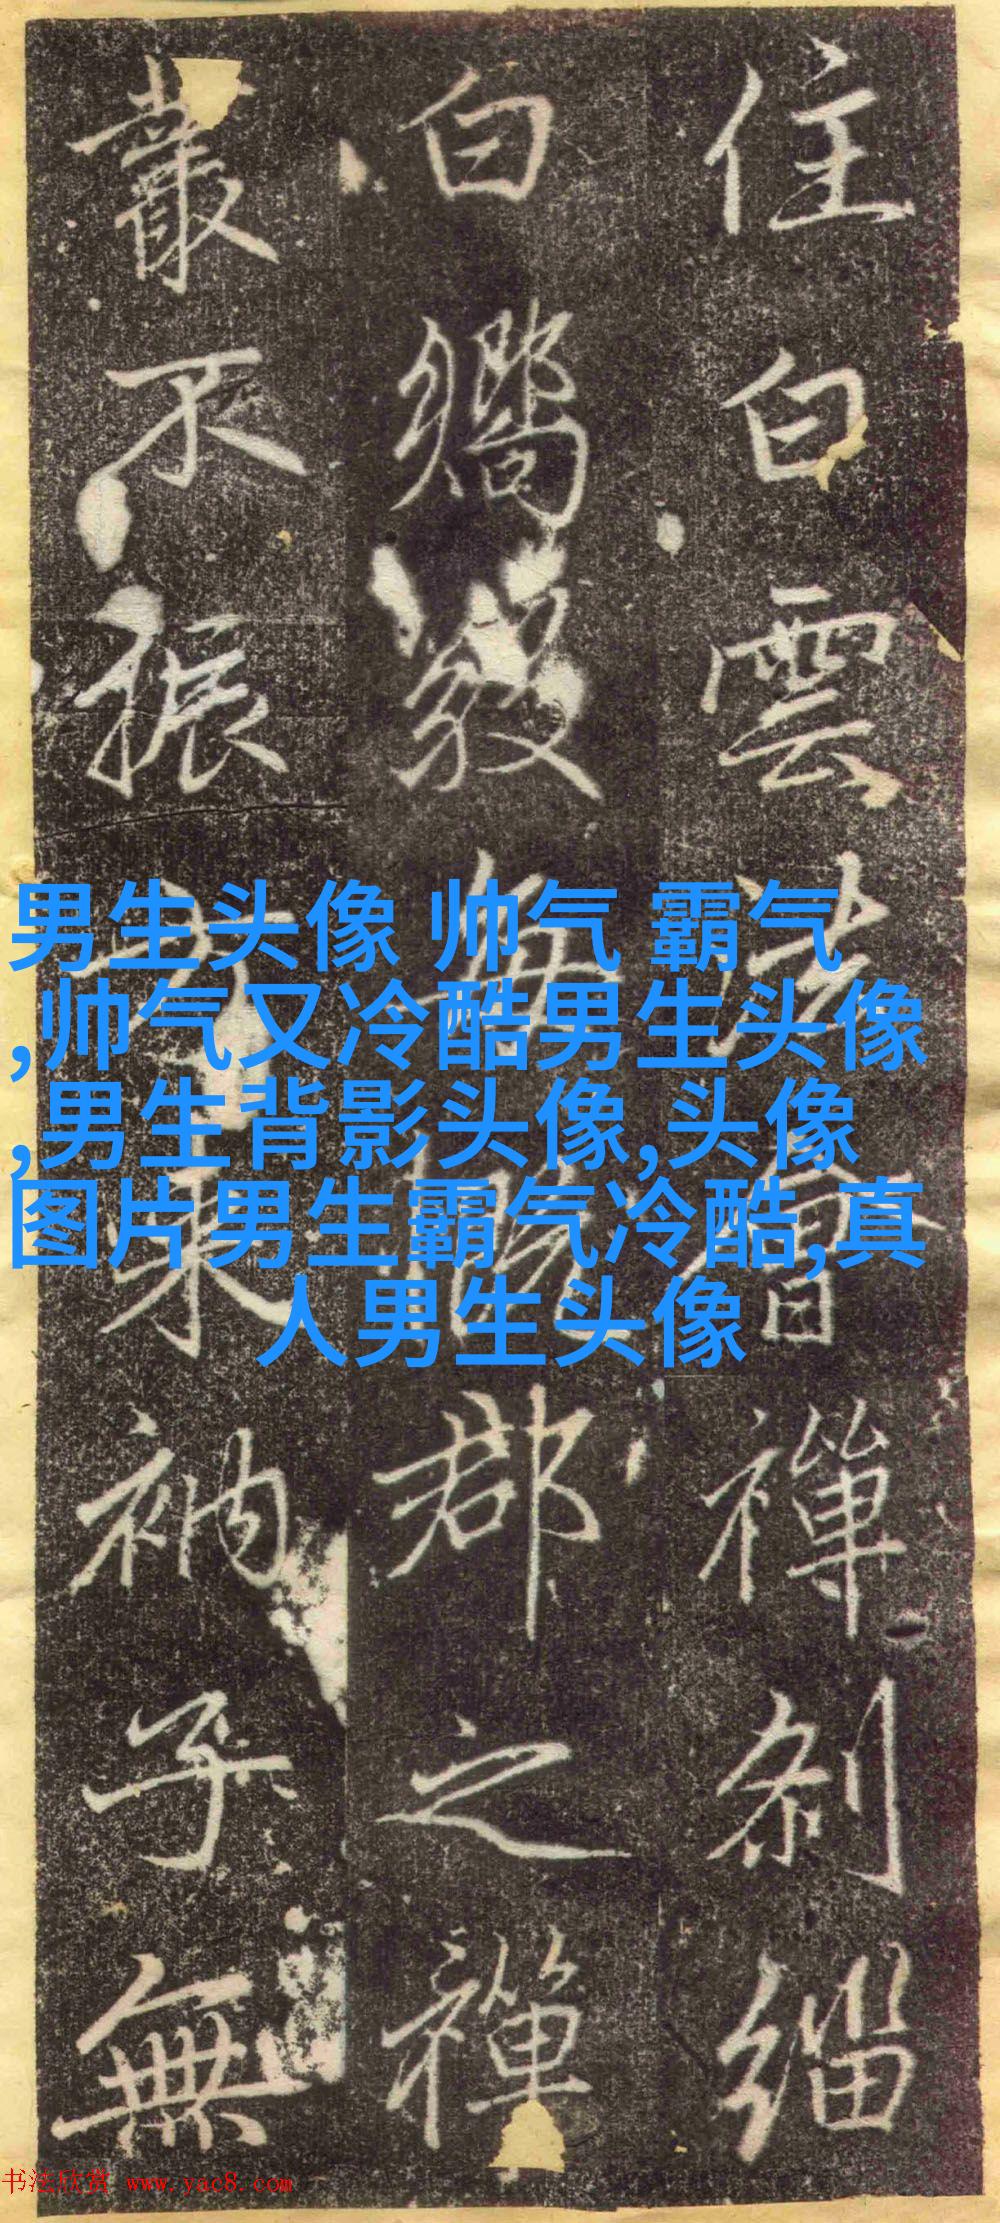 住白雲法會禪刹緇
白
每
郡之禪
叢不振
来衲子無
男生头像 帅气 霸气
,帅气又冷酷男生头像
,男生背影头像,头像
图片男生霸气冷酷,真
人男生头像
书法欣赏 www.yac8.com